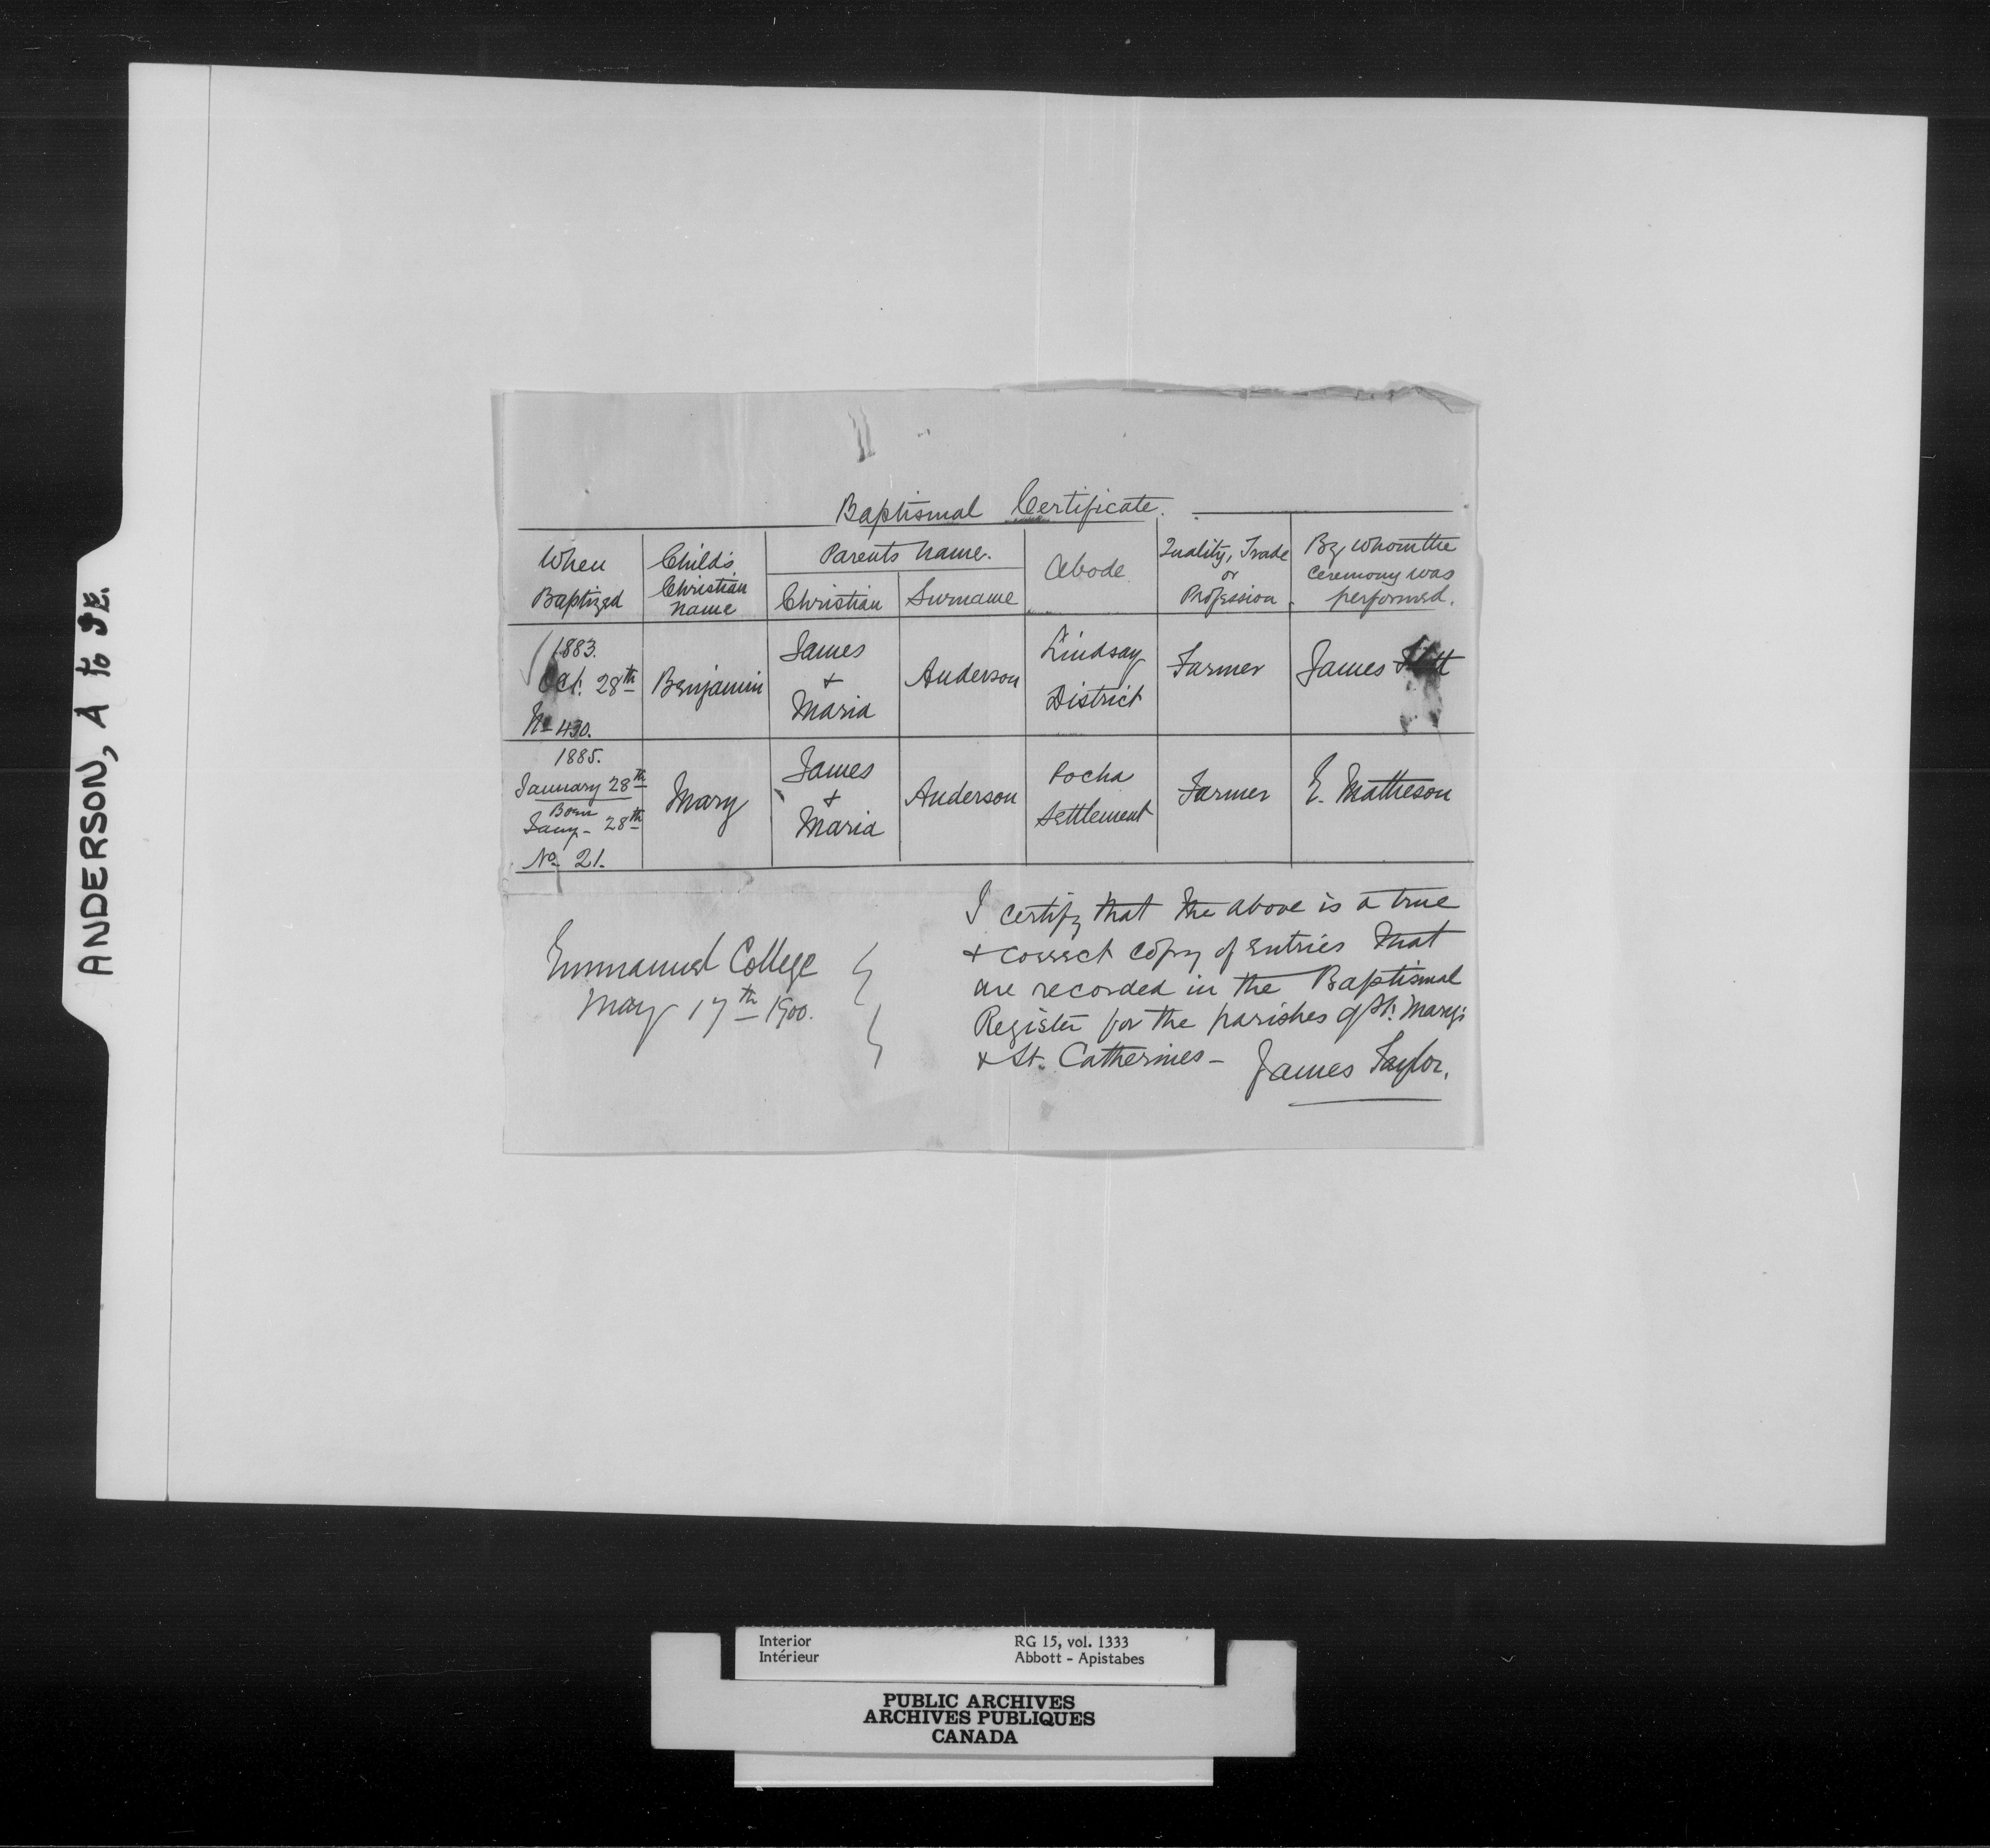 ANDERSON, A to JE.
Baptismal Certificate.
When Baptized
Child's Christian Name
Parents Name.
Christian
Surname
Abode
Quality, Trade or Profession
By whom the ceremony was performed.
1883.
Oct. 28th
No 430.
Benjamin
James + Maria
Anderson
Lindsay District
Farmer
James
1885.
January 28th
Born
Jany- 28th
No 21.
Mary
James + Maria
Anderson
Pocha Settlement
Farmer
E. Matheson
I certify that the above is a true
+ correct copy of entries that
are recorded in the Baptismal
Register for the parishes of St. Mary's
+ St. Catherines - James Taylor.
Emmanuel College
May 17th 1900.
Interior
Intérieur
RG 15, vol. 1333
Abbott - Apistabes
PUBLIC ARCHIVES
ARCHIVES PUBLIQUES
CANADA